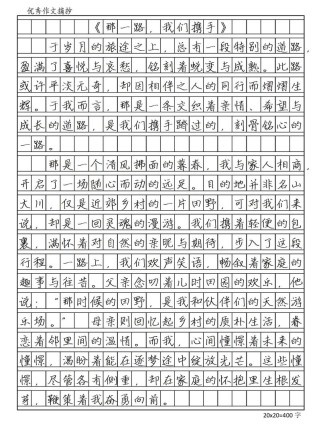 优秀作文摘抄
《那一路，我们携手》
于岁月的旅途之上，总有一段特别的道路，
盈满了喜悦与哀愁，铭刻着蜕变与成熟。此路
或许平淡无奇，却因相伴之人的同行而熠熠生
辉。于我而言，那是一条交织着亲情、希望与
成长的道路，是我们携手踏过的，刻骨铭心的
一路。
那是一个清风拂面的暮春，我与家人相商，
开启了一场随心而动的远足。目的地并非名山
大川，仅是近郊乡村的田野，可对我们来
说，却是一回灵魂的漫游。我们携着轻便的包
裹，满怀着对自然的亲昵与期待，步入了这段
行程。一路上，我们欢声笑语，畅叙着家庭的
趣事与往昔。父亲念叨着儿时田园的欢乐，他
说：“那时候的田野，是我和伙伴们的天然游
乐场。”母亲则回忆起乡村的质朴生活，眷
恋着邻里间的温情。而我，心间憧憬着未来的
憧憬，满盼着能在逐梦途中绽放光芒。这些憧
憬，尽管各有侧重，却在彼此的怀抱里生根发
芽，鞭策着我奋勇向前。
20x20=400 字